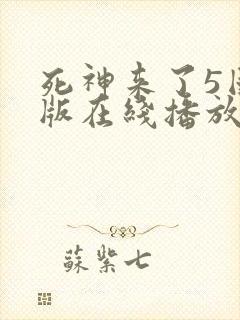 死神来了5
版在线播放
蘇紫七